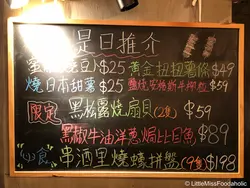 是日推介
$25 黃金扭扭薯條 $49
燒日本甜薯 $25 $59
限定 黑松露燒扇貝(2隻) $59
黑椒牛油洋蔥焗比目魚 $89
必食 串酒里燒蠔拼盤(9隻) $198
© LittleMissFoodaholic